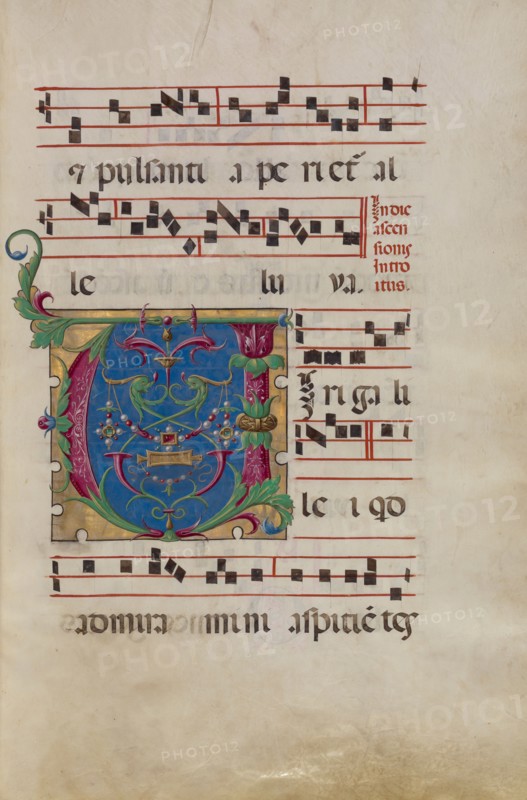 ⁊ pulsanti a pe ri et̃ al
le lu ya.
In die
ascen
sionis
Intro
itus.
V iri ga li
le i qd
admira mini aspiciẽ tes
PHOTO12